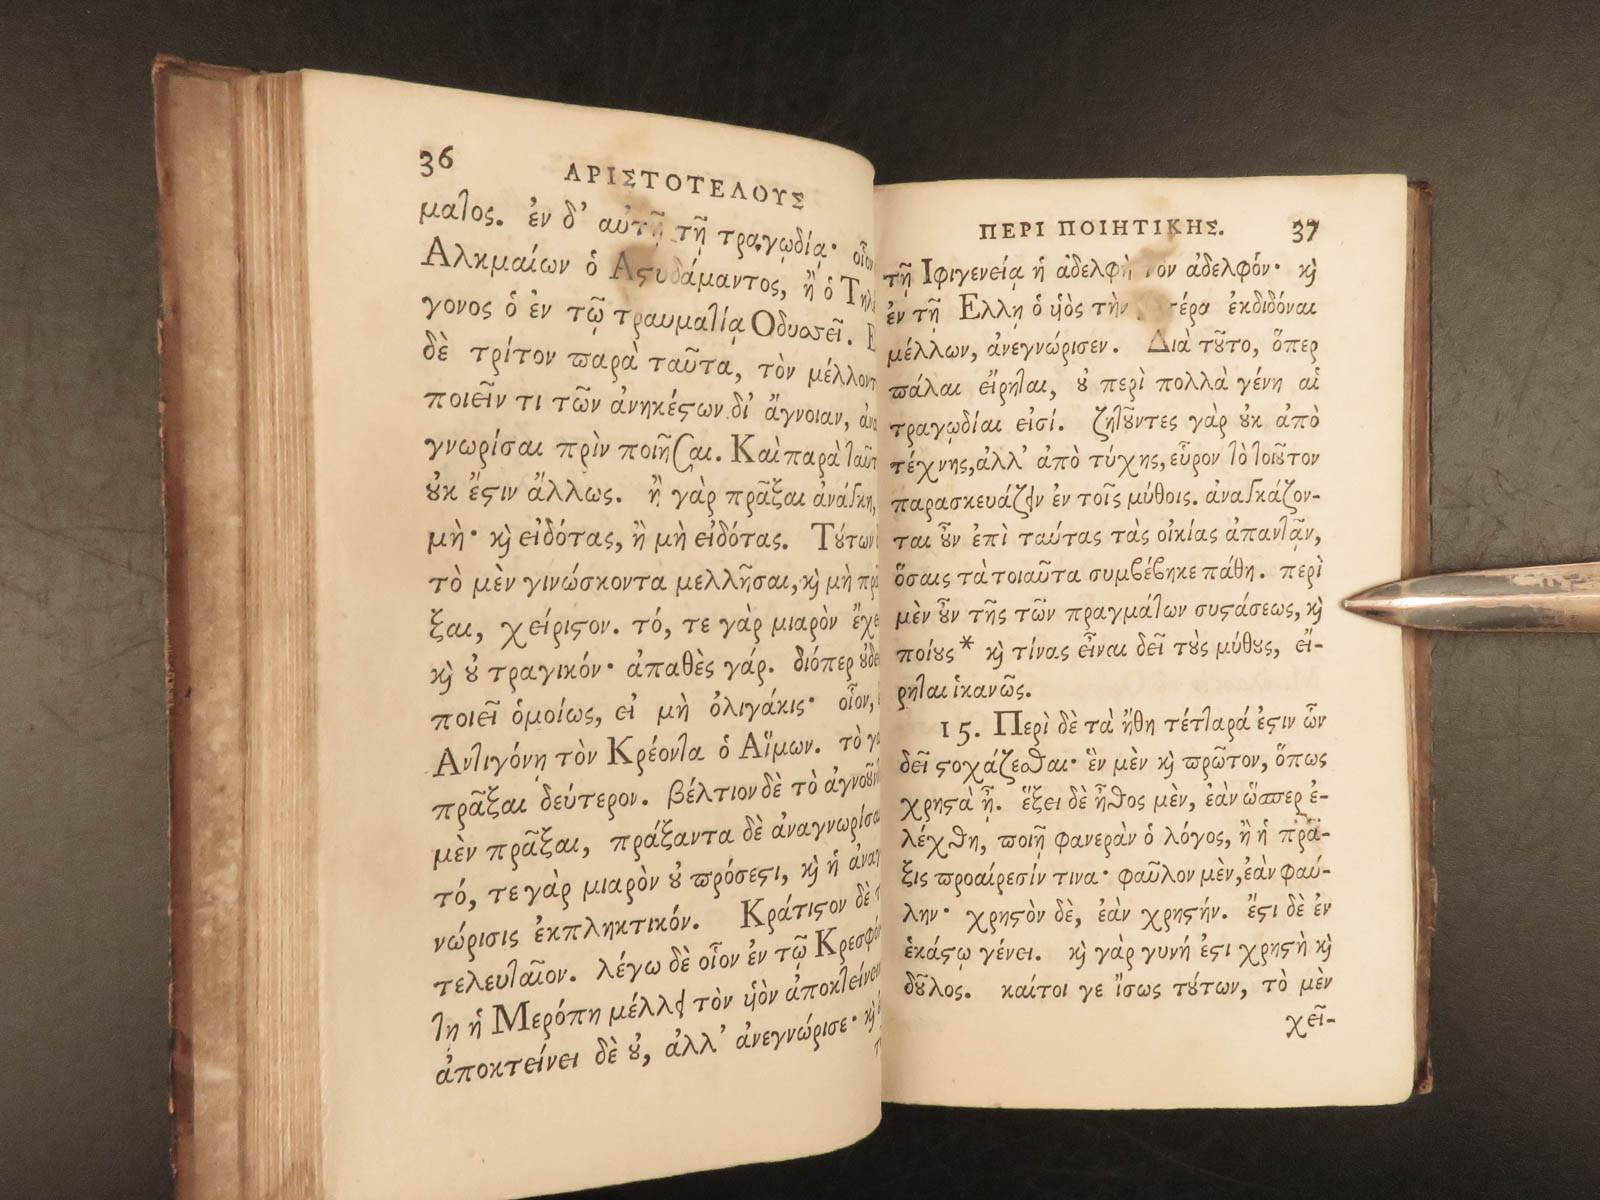 36
ΑΡΙΣΤΟΤΕΛΟΥΣ
ματος. ἐν δ' αὐτῇ τῇ τραγῳδίᾳ· οἷον
Αλκμαίων ὁ Αϛυδάμαντος, ἢ ὁ Τηλε
γονος ὁ ἐν τῷ τραυματίᾳ Οδυσσεῖ. Ε
δὲ τρίτον παρὰ ταῦτα, τὸν μέλλοντ
ποιεῖν τι τῶν ἀνηκέϛων δι' ἄγνοιαν, ἀνα
γνωρίσαι πρὶν ποιῆσαι. Καὶ παρὰ ταῦτ
ȣκ ἔϛιν ἄλλως. ἢ γὰρ πρᾶξαι ἀνάγκη,
μή· ϗ εἰδότας, ἢ μὴ εἰδότας. Τȣ́των
τὸ μὲν γινώσκοντα μελλῆσαι, ϗ μὴ πρᾶ
ξαι, χείριϛον. τό, τε γὰρ μιαρὸν ἔχει
ϗ ȣ̓ τραγικόν· ἀπαθὲς γάρ. διόπερ ȣ̓δε
ποιεῖ ὁμοίως, εἰ μὴ ὀλιγάκις· οἷον,
Αντιγόνῃ τὸν Κρέοντα ὁ Αἵμων. τὸ γα
πρᾶξαι δεύτερον. βέλτιον δὲ τὸ ἀγνοοῦντ
μὲν πρᾶξαι, πράξαντα δὲ ἀναγνωρίσαι
τό, τε γὰρ μιαρὸν ȣ̓ πρόσεϛι, ϗ ἡ ἀναγ
νώρισις ἐκπληκτικόν. Κράτιϛον δὲ τ
τελευταῖον. λέγω δὲ οἷον ἐν τῷ Κρεσφόν
τῃ ἡ Μερόπη μέλλει τὸν υἱὸν ἀποκτείνειν
ἀποκτείνει δὲ ȣ̓, ἀλλ' ἀνεγνώρισε· ϗ ἐ
ΠΕΡΙ ΠΟΙΗΤΙΚΗΣ.
37
τῇ Ιφιγενείᾳ ἡ ἀδελφὴ τὸν ἀδελφόν· ϗ
ἐν τῇ Ελλῃ ὁ υἱὸς τὴν ἐκδιδόναι
μέλλων, ἀνεγνώρισεν. Διὰ τȣ͂το, ὅπερ
πάλαι εἴρηται, ȣ̓ περὶ πολλὰ γένη αἱ
τραγῳδίαι εἰσί. ζητȣ͂ντες γὰρ ȣ̓κ ἀπὸ
τέχνης, ἀλλ' ἀπὸ τύχης, εὗρον τὸ τοιȣ͂τον
παρασκευάζειν ἐν τοῖς μύθοις. ἀναγκάζον-
ται ȣ̓͂ν ἐπὶ ταύτας τὰς οἰκίας ἀπαντᾷν,
ὅσαις τὰ τοιαῦτα συμβέβηκε πάθη. περὶ
μὲν ȣ̓͂ν τῆς τῶν πραγμάτων συϛάσεως, ϗ
ποίȣς* ϗ τίνας εἶναι δεῖ τȣ̀ς μύθȣς, εἴ-
ρηται ἱκανῶς.
15. Περὶ δὲ τὰ ἤθη τέτταρά ἐϛιν ὧν
δεῖ ϛοχάζεσθαι· ἓν μὲν ϗ πρῶτον, ὅπως
χρηϛὰ ᾖ. ἕξει δὲ ἦθος μὲν, ἐὰν ὥσπερ ἐ-
λέχθη, ποιῇ φανερὰν ὁ λόγος, ἢ ἡ πρᾶ-
ξις προαίρεσίν τινα· φαῦλον μὲν, ἐὰν φαύ-
λην· χρηϛὸν δὲ, ἐὰν χρηϛήν. ἔϛι δὲ ἐν
ἑκάϛῳ γένει. ϗ γὰρ γυνή ἐϛι χρηϛὴ ϗ
δȣ͂λος. καίτοι γε ἴσως τȣ́των, τὸ μὲν
χεῖ-